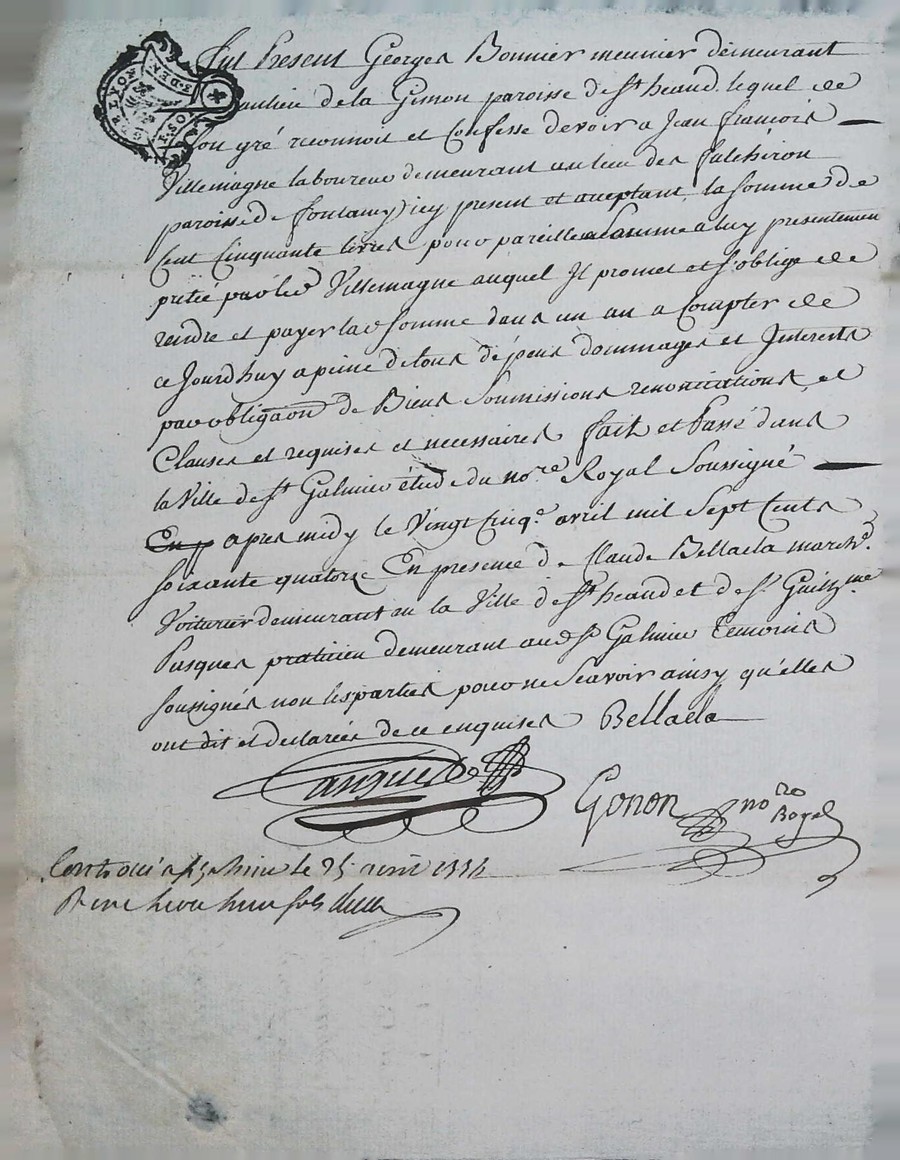 Fut Present Georges Bonnier meunier demeurant
au lieu de la Gimon paroisse de St heand lequel de
son gré reconnoit et Confesse devoir a Jean françois
Villemagne laboureur demeurant au lieu des falchiron
paroisse de fontany icy present et aceptant la somme de
Cent Cinquante livres pour pareille somme a luy presentemen
pretée par led Villemagne auquel Il promet et s'oblige de
rendre et payer lad somme dans un an a Compter de
ce Jourd'huy a peine de tous dépens dommages et Interests
par obligaon de Biens Soumissions renontiations et
Clauses et requises et necessaires fait et Passé dans
la Ville de St Galmier étude du nore Royal Soussigné
En p apres midy le Vingt Cinqe avril mil Sept Cents
soixante quatorze En presence de Claude Bellacla marchd
Voiturier demeurant en la Ville de St heand et de Sr Guillme
Pasques praticien demeurant aud St Galmier temoins
soussignés non les parties pour ne Scavoir ainsy qu'elles
ont dit et declarées de ce enquises Bellacla
Pasques
Gonon nore
Royal
Controlé a St Galmier le 25 avril 1774
GEN DE LYON
2 S. DEN
F. SOLS